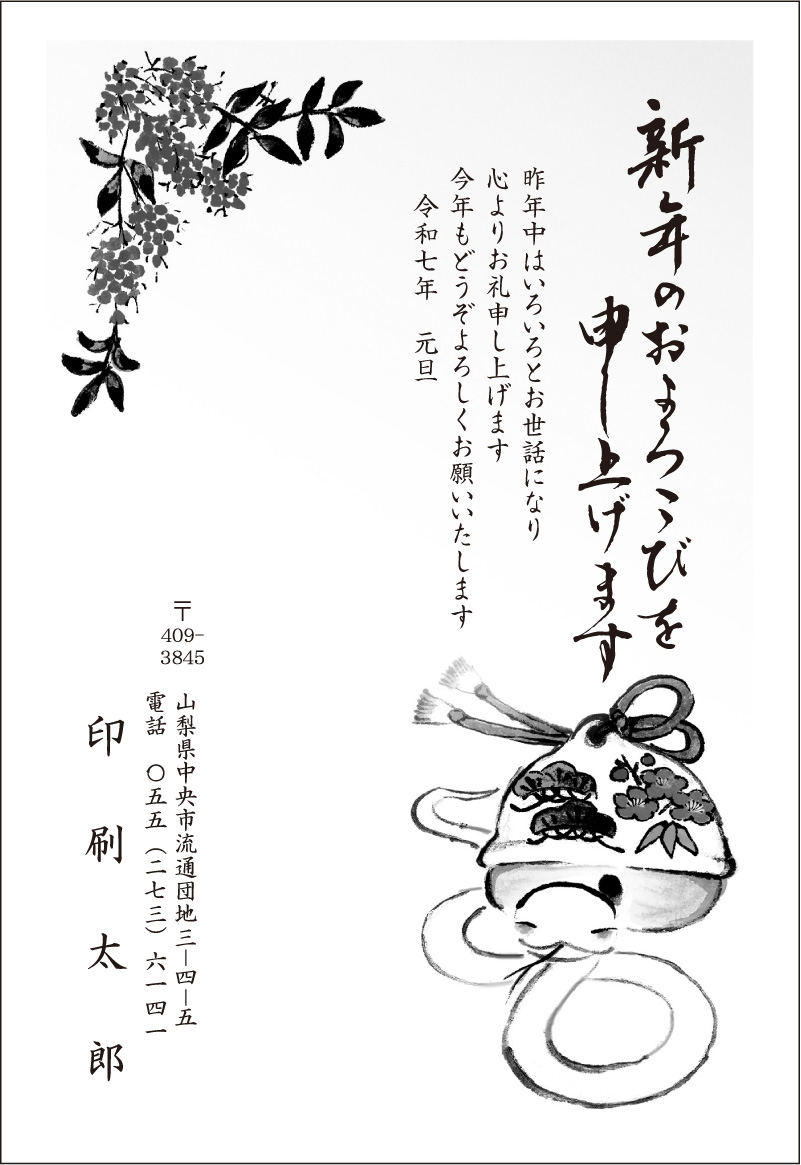 新年のおよろこびを
申し上げます
昨年中はいろいろとお世話になり
心よりお礼申し上げます
今年もどうぞよろしくお願いいたします
令和七年　元旦
〒
409-
3845
山梨県中央市流通団地三―四―五
電話　〇五五（二七三）六一四一
印刷太郎